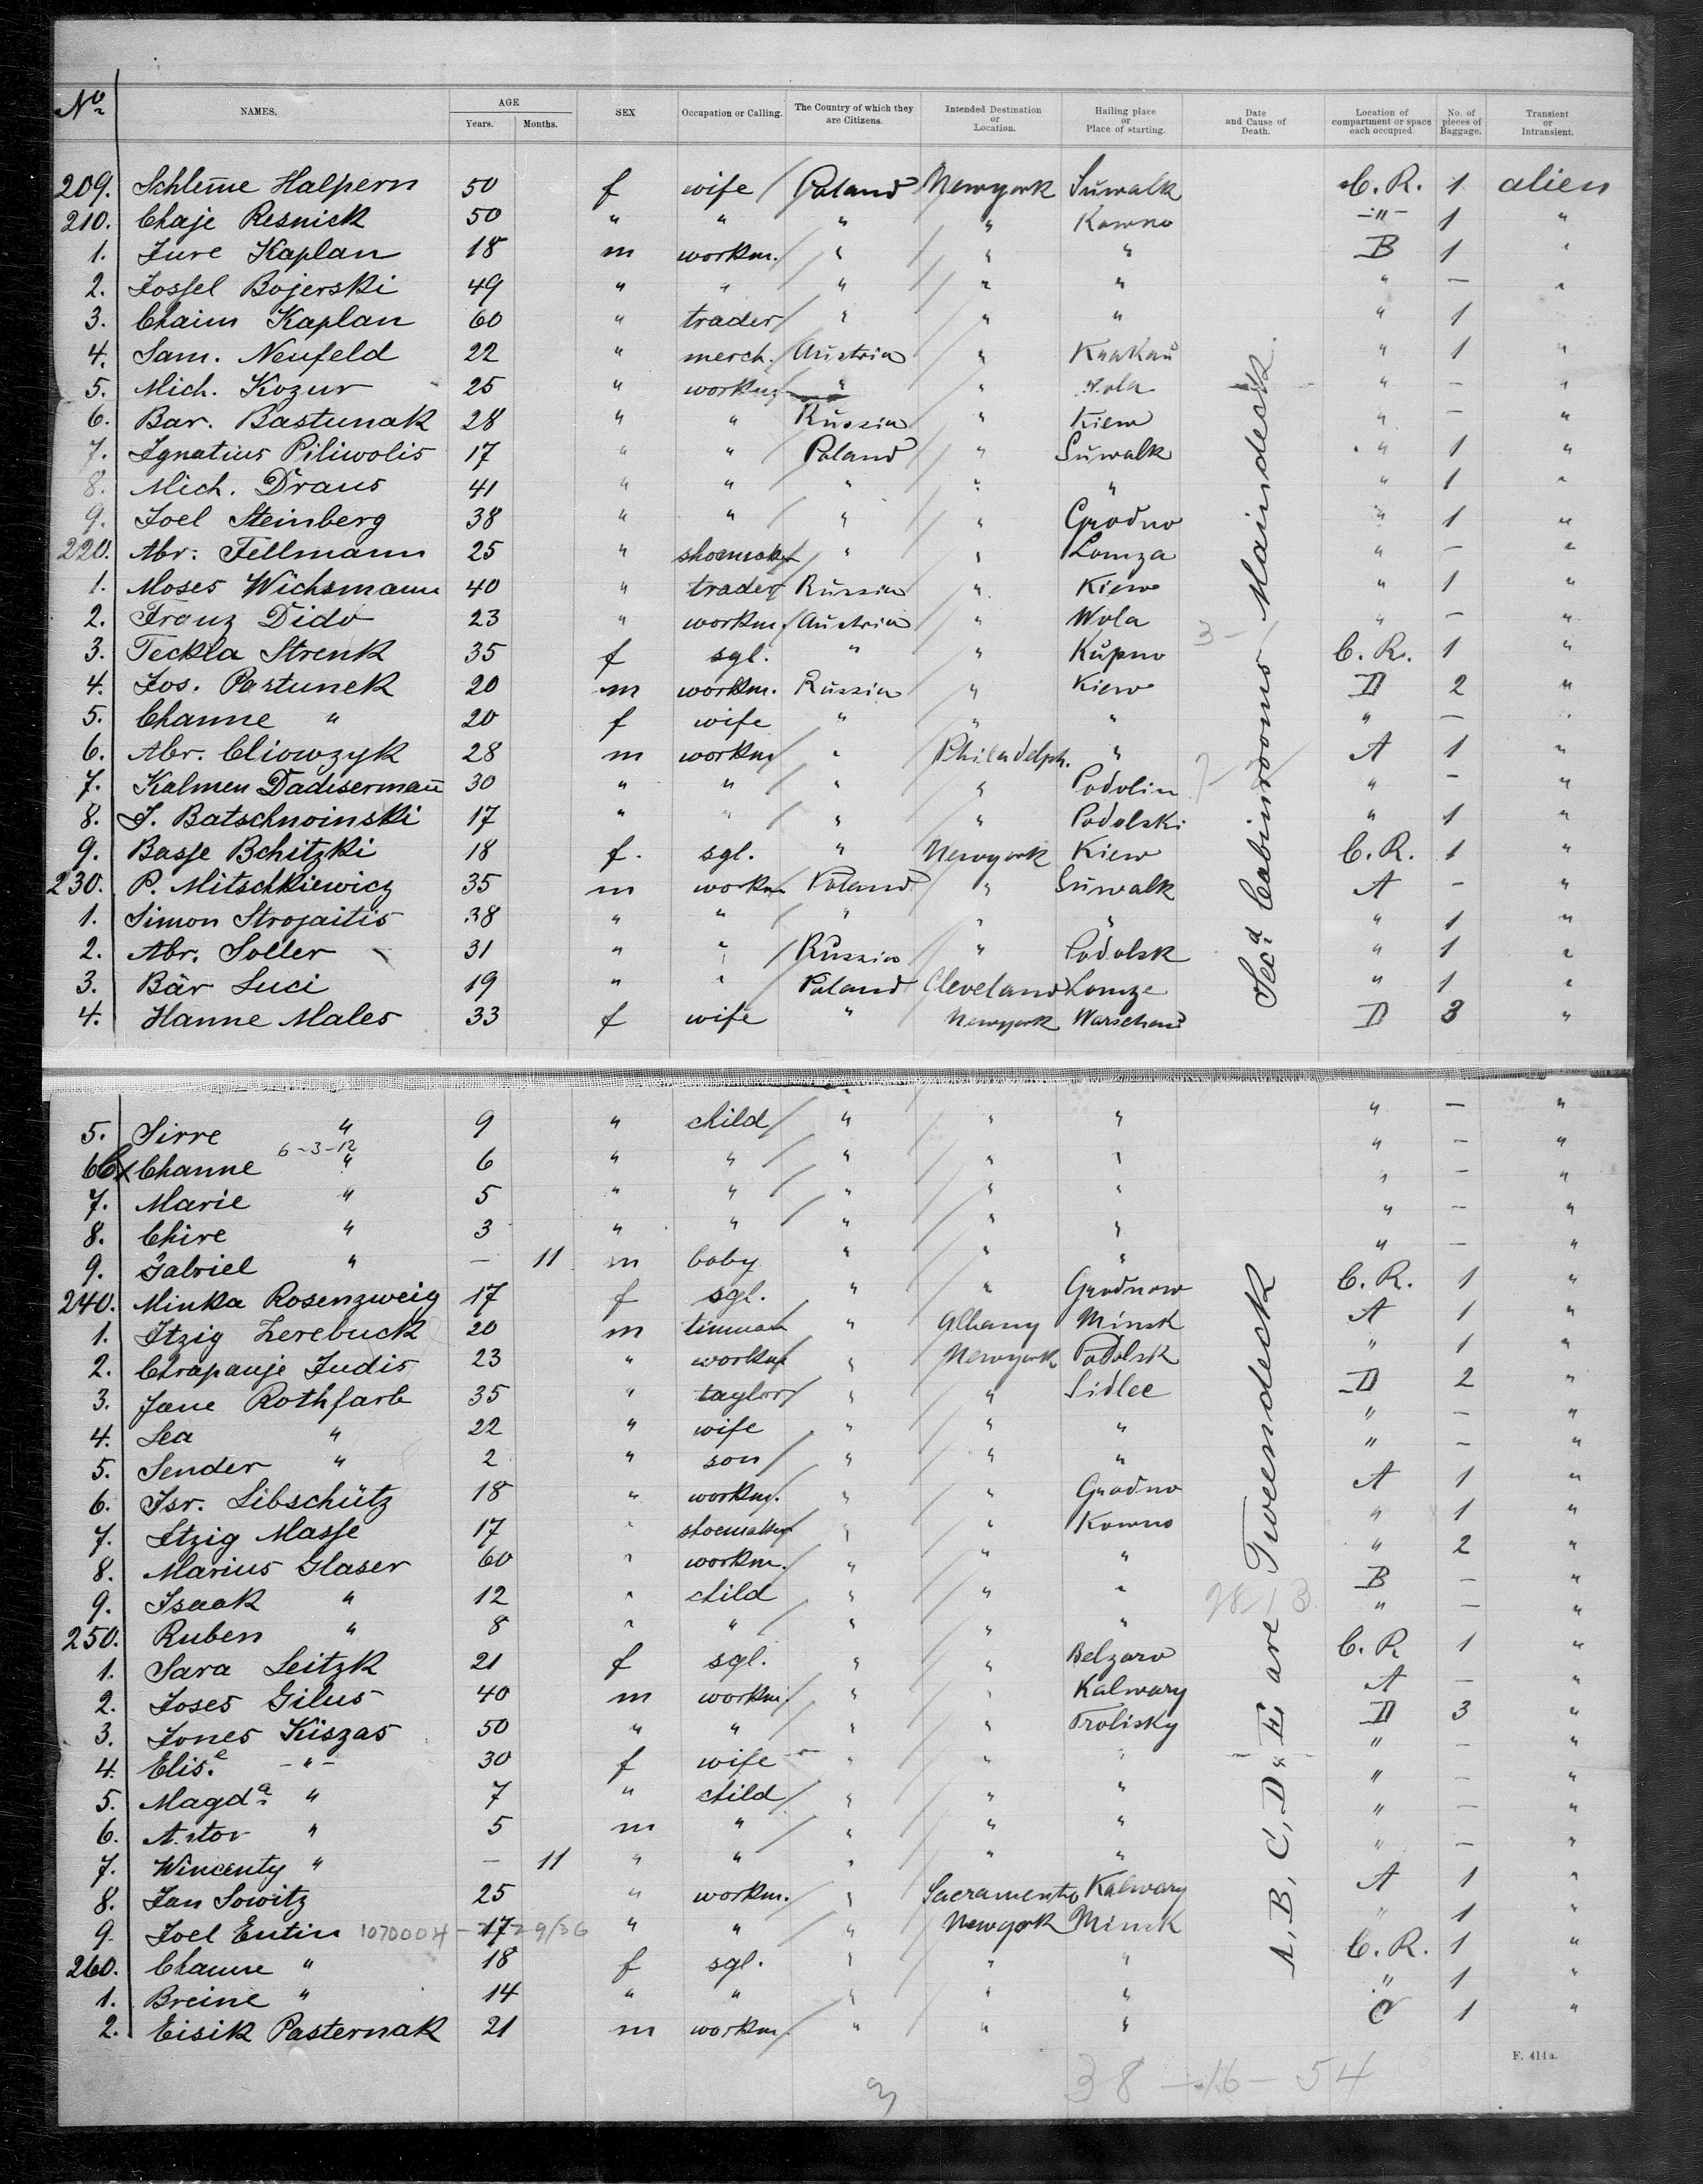 No NAMES. AGE Years. Months. SEX Occupation or Calling. The Country of which they are Citizens. Intended Destination or Location. Hailing place or Place of starting. Date and Cause of Death. Location of compartment or space each occupied. No. of pieces of Baggage. Transient or Intransient.
209. Schleme Halpern 50 f wife Poland Newyork Suwalk C. R. 1 alien
210. Chaje Resnick 50 " " " " Kowno -"- 1 "
1. Jure Kaplan 18 m workm. " " " B 1 "
2. Jossel Bojerski 49 " " " " " " — "
3. Chaim Kaplan 60 " trader " " " " 1
4. Sam. Neufeld 22 " merch. Austria " Krakau " 1 "
5. Mich. Kozur 25 " workm. " " " — "
6. Bar. Bastunak 28 " " Russia " Kiew " — "
7. Ignatius Piliwolis 17 " " Poland " Suwalk " 1 "
8. Mich. Draus 41 " " " " " " 1 "
9. Joel Steinberg 38 " " " " Grodno " 1 "
220. Abr. Fellmann 25 " shoemaker " " Lomza " — "
1. Moses Wichsmann 40 " trader Russia " Kiew " 1 "
2. Franz Dido 23 " workm. Austria " Wola " — "
3. Teckla Strenk 35 f sgl. " " Kupno C. R. 1 "
4. Jos. Pastunek 20 m workm. Russia " Kiew D 2 "
5. Channe " 20 f wife " " " " — "
6. Abr. Cliowzyk 28 m workm. " Philadelph. " A 1 "
7. Kalmen Dadisermann 30 " " " " Podolin " — "
8. J. Batschnoinski 17 " " " " Podolski " 1 "
9. Basse Bchitzki 18 f. sgl. " Newyork Kiew C. R. 1 "
230. P. Mitschkiewicz 35 m workm Poland " Suwalk A — "
1. Simon Strojaitis 38 " " " " " " 1 "
2. Abr. Soller 31 " " Russia " Podolsk " 1 "
3. Bär Luci 19 " " Poland Cleveland Lomze " 1 "
4. Hanne Males 33 f wife " Newyork Warschau D 3 "
5. Sirre " 9 " child " " " " — "
6 6-3-12
Channe " 6 " " " " " " — "
7. Marie " 5 " " " " " " — "
8. Chire " 3 " " " " " " — "
9. Gabriel " — 11 m baby " " " " — "
240. Minka Rosenzweig 17 f sgl. " " Grodnow C. R. 1 "
1. Itzig Zerebuck 20 m tinman " Albany Minsk A 1 "
2. Chrapanje Judis 23 " workm " Newyork Podolsk " 1 "
3. Jane Rothfarb 35 " taylor " " Sidlee D 2 "
4. Lea " 22 " wife " " " " — "
5. Sender " 2 " son " " " " — "
6. Isr. Libschütz 18 " workm. " " Grodno A 1 "
7. Itzig Masse 17 " shoemaker " " Kowno " 1 "
8. Marius Glaser 60 " workm. " " " " 2 "
9. Isaak " 12 " child " " " B — "
250. Ruben " 8 " " " " " " — "
1. Sara Leitzk 21 f sgl. " " Belzaro C. R 1 "
2. Joses Gilus 40 m workm. " " Kalwary A — "
3. Jones Kiszas 50 " " " " Trolisky D 3 "
4. Elis.e -"- 30 f wife " " " " — "
5. Magda " 7 " child " " " " — "
6. Antor " 5 m " " " " " — "
7. Wincenty " — 11 " " " " " " — "
8. Jan Sowitz 25 " workm. " Sacramento Kalwary A 1 "
9. Joel Entin 1070004 17 " " " Newyork Minsk " 1 "
260. Channe " 18 f sgl. " " " C. R. 1 "
1. Breine " 14 " " " " " " 1 "
2. Eisik Pasternak 21 m workm. " " " C 1 "
A, B, C, D " E are Tweendeck
Secd Cabinrooms Maindeck.
38 — 16 — 54
F. 411a.